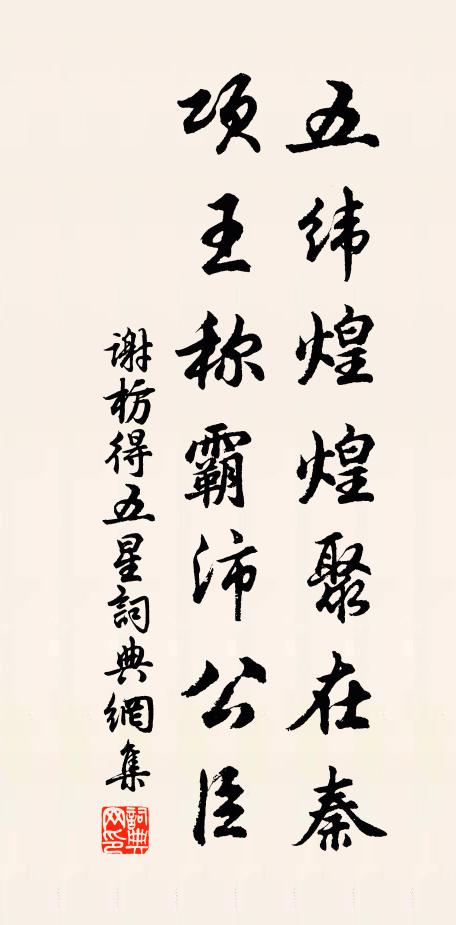 五纬煌煌聚在秦
项王称霸沛公臣
谢枋得五星詞典網集
詞典网印